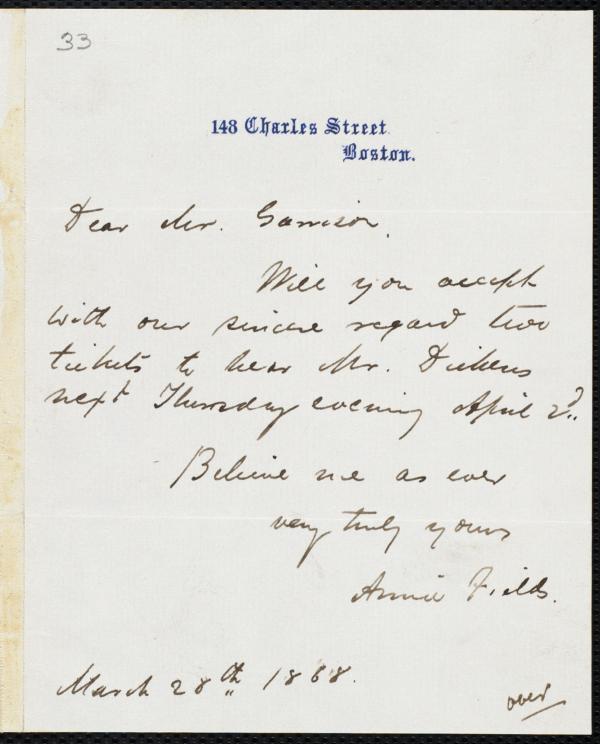 33
148 Charles Street
Boston.
Dear Mr. Garrison,
Will you accept
with our sincere regard two
tickets to hear Mr. Dickens
next Thursday evening April 2d.
Believe me as ever
very truly yours
Annie Fields.
March 28th 1868.
over